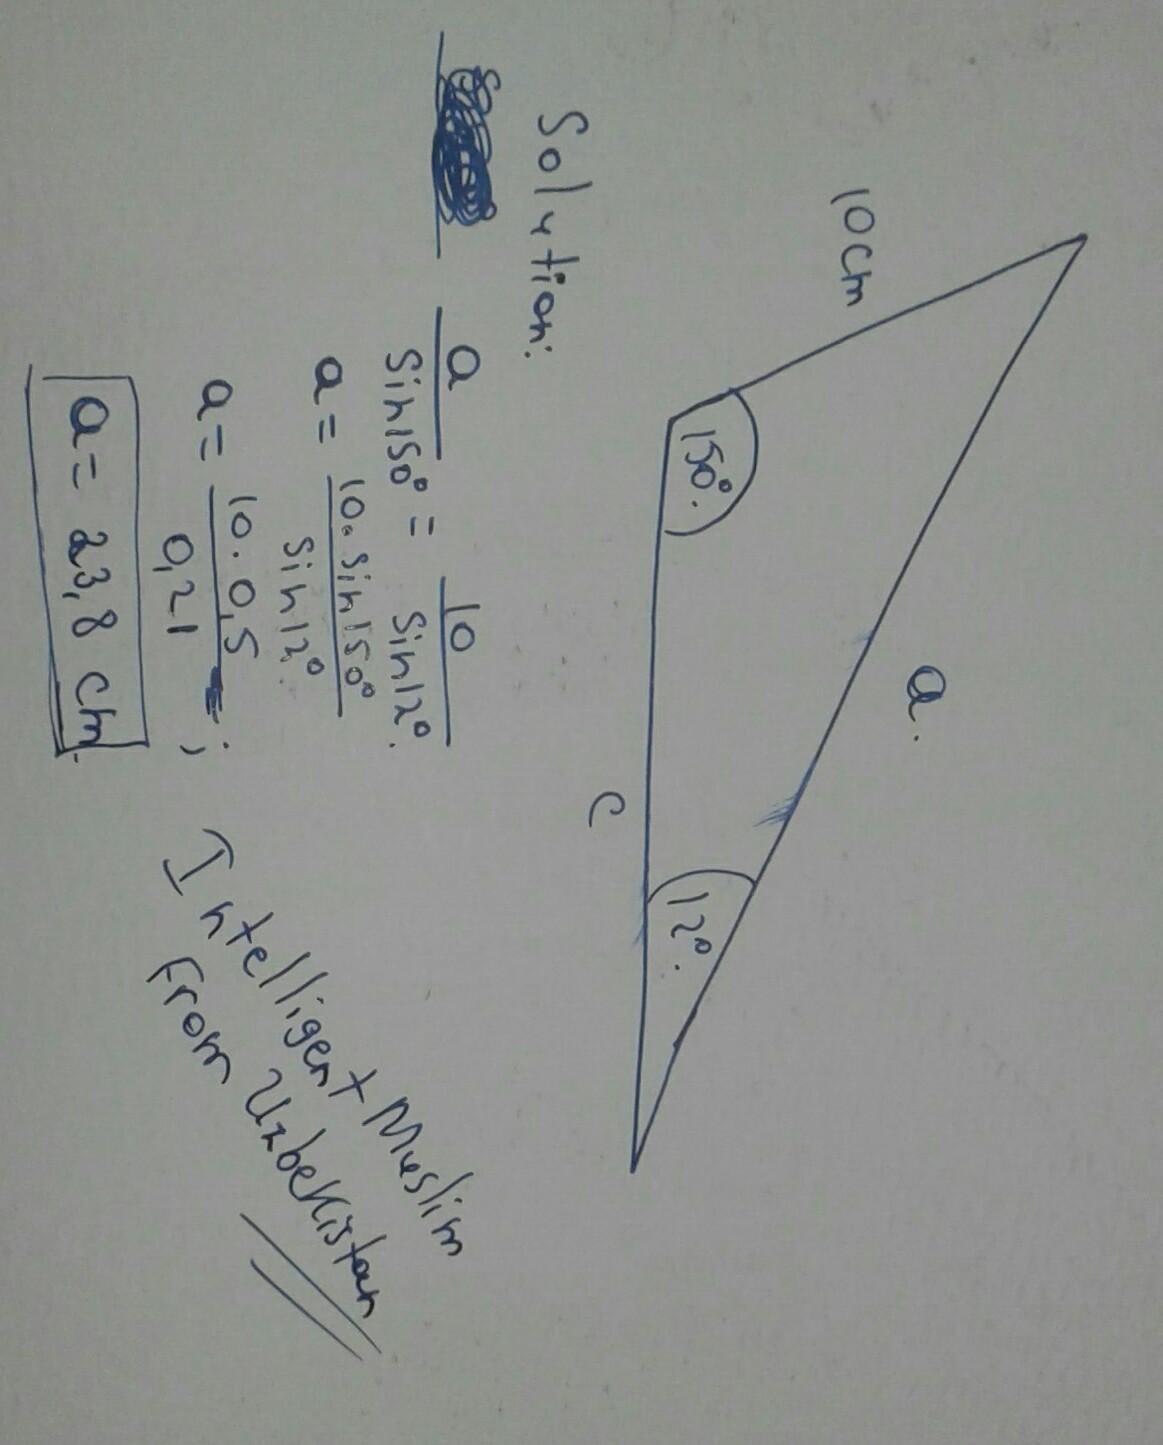 10cm
150°.
a.
12°.
C
Solution:
a / Sin150° = 10 / Sin12°.
a = 10. Sin150° / Sin12°.
a = 10. 0,5 / 0,21 ;
a = 23,8 cm.
Intelligent Muslim
From Uzbekistan